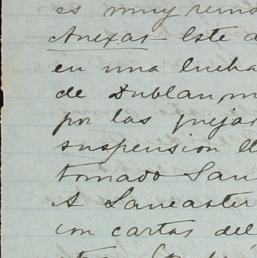 es muy remo
Anexas Este a
en una lucha
de Dublan, m
por las quejas
suspension de
tomado San
A Lancaster
con cartas del